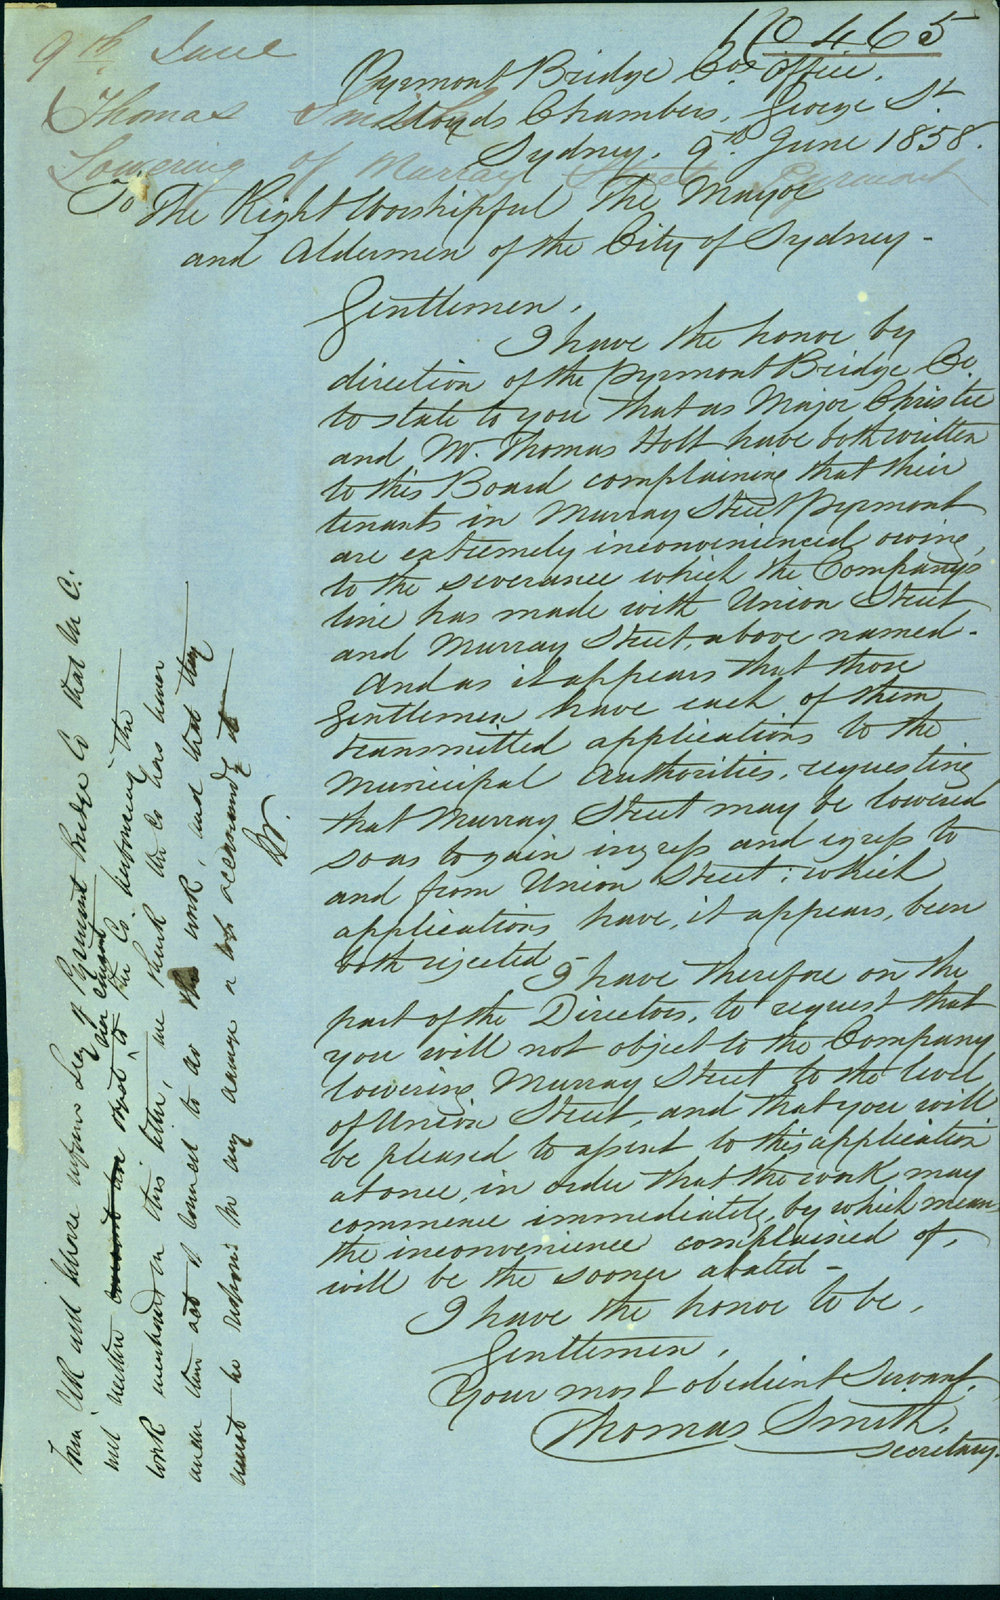 No 465
9th June
Thomas Smith
Lowering of Murray Street Pyrmont
Pyrmont Bridge Cos. Office.
Lloyds Chambers, George St.
Sydney. 9th. June 1858.
To The Right Worshipful The Mayor
and Aldermen of the City of Sydney -
Gentlemen,
I have the honor by
direction of the Pyrmont Bridge Co.
to state to you that as Major Christie
and Mr. Thomas Holt have both written
to this Board complaining that their
tenants in Murray Street Pyrmont
are extremely inconvenienced owing,
to the severance which the Company's
line has made with Union Street
and Murray Street, above named -
And as it appears that those
Gentlemen have each of them
transmitted applications to the
Municipal Authorities, requesting
that Murray Street may be lowered
so as to gain ingress and egress to
and from Union Street; which
applications have, it appears, been
both rejected
I have therefore on the
part of the Directors, to request that
you will not object to the Company
lowering Murray Street to the level
of Union Street, and that you will
be pleased to assent to this application
at once, in order that the work may
commence immediately, by which means
the inconvenience complained of,
will be the sooner abated -
I have the honor to be,
Gentlemen,
Your most obedient Servant,
Thomas Smith.
Secretary.
inform Secy of Pyrmont Bridge Co that the C.
neither consent to the Co. performing the
work mentioned in this letter, we think the Co has power
under their act of Council to do the work, and that they
must be responsible for any damage